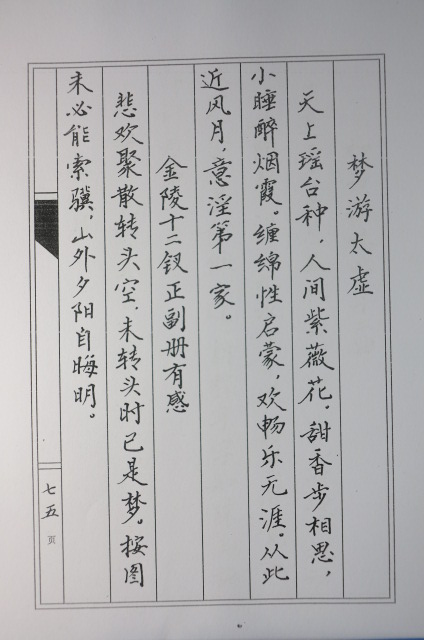 梦游太虚
天上瑶台种，人间紫薇花。甜香步相思，
小睡醉烟霞。缠绵性启蒙，欢畅乐无涯。从此
近风月，意淫第一家。
金陵十二钗正副册有感
悲欢聚散转头空，未转头时已是梦。按图
未必能索骥，山外夕阳自晦明。
七五页